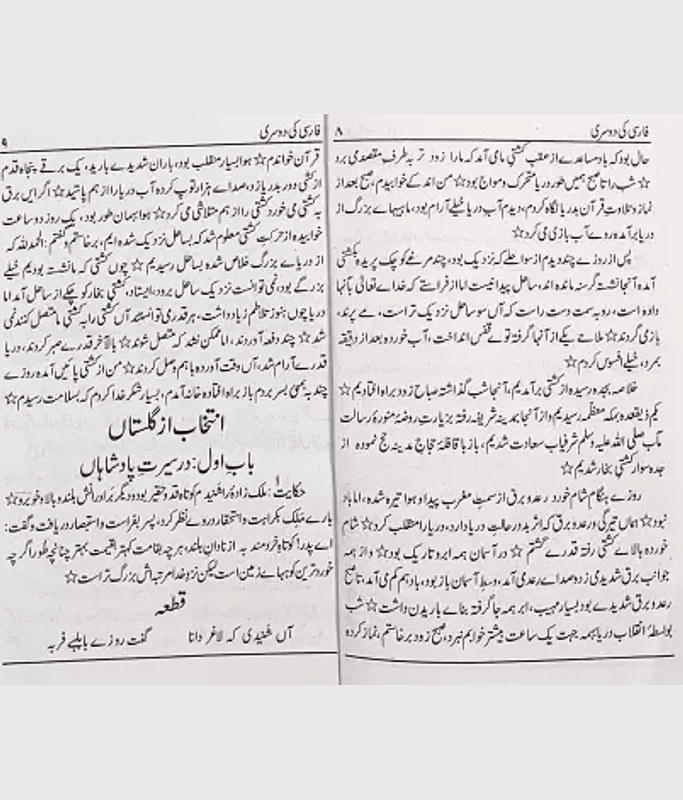 فارسی کی دوسری ۸
حال بود کہ باد مساعدے از عقب کشتی ما می آمد کہ مارا زود تر بہ طرفِ مقصد می برد
☆ شب را تا صبح ہمیں طور دریا متحرک و مواج بود ☆ من اندکے خوابیدم، صبح بعد از
نماز و تلاوتِ قرآن بدریا نگاہ کردم، دیدم آب دریا خیلے آرام بود، ماہیہاے بزرگ از
دریا برآمدہ روے آب بازی می کرد ☆
پس از روزے چند دیدم از سواحلے کہ نزدیک بود، چند مرغے کوچک پریدہ بکشتی
آمدہ آنجا نشستہ گرسنہ ماندہ اند، ساحل پیدا نیست اما از فراستے کہ خداے تعالٰی بآنہا
دادہ است، رو بہ سمت دست راست کہ آں سو ساحل نزدیک تر است، مے پرند،
باز می گردند ☆ ملاحے یکے از آنہا گرفتہ توے قفس انداخت، آب خوردہ بعد از دقیقہ
بمرد، خیلے افسوس کردم ☆
خلاصہ بجدہ رسیدہ از کشتی برآمدیم، آنجا شب گذاشتہ صباح زود براہ افتادیم ☆
یکم ذیقعدہ بمکہ معظمہ رسیدیم و از آنجا بمدینہ شریفہ رفتہ بزیارتِ روضۂ منورۂ رسالت
مآب صلی اللہ علیہ وسلم شرفیاب سعادت شدیم، باز با قافلۂ حجاج مدینہ حج نمودہ از
جدہ سوار کشتی بخار شدیم ☆
روزے ہنگامِ شام خورد رعد و برق از سمتِ مغرب پیدا و ہوا تیرہ شدہ، اما باد
نبود ☆ ہماں تیرگی و رعد و برق کہ اثر بد در حالتِ دریا دارد، دریا را منقلب کرد ☆ شام
خوردہ بالاے کشتی رفتہ قدرے گشتم ☆ در آسمان ہمہ ابر و تاریک بود ☆ و از ہمہ
جوانب برق شدیدی زد و صداے رعد می آمد، وسطِ آسمان باز بود، باد ہم کم می آمد، تا صبح
رعد و برق شدیدے بود بسیار مہیب، ابر ہمہ جا گرفتہ بناے باریدن داشت ☆ شب
بواسطۂ انقلاب دریا بہمہ جہت یک ساعت بیشتر خوابم نبرد، صبح زود برخاستم، نماز کردہ
فارسی کی دوسری ۹
قرآن خواندم ☆ ہوا بسیار منقلب بود، باران شدیدے بارید، یک برقے پنجاہ قدم
از کشتی دور بدریا زد، صداے ہزار توپ کردہ آب دریا را از ہم پاشید ☆ اگر ایں برق
بہ کشتی می خورد کشتی را از ہم متلاشی می کرد ☆ ہوا ہماں طور بود، یک روز دو ساعت
خوابیدہ از حرکتِ کشتی معلوم شد کہ بساحل نزدیک شدہ ایم، برخاستم و گفتم: الحمد للہ کہ
از دریاے بزرگ خلاص شدہ بساحل رسیدیم ☆ چوں کشتی کہ ما نشستہ بودیم خیلے
بزرگے بود، نمی توانست نزدیک ساحل برود، ایستاد، کشتی بخار کوچکے از ساحل آمد اما
دریا چوں ہنوز تلاطم زیاد داشت، ہر قدر می خواستند آں کشتی را بہ کشتی ما متصل کنند نمی
شد ☆ چند دفعہ آوردند، اما ممکن نشد کہ متصل شوند ☆ بالآخر قدرے صبر کردند، دریا
قدرے آرام شد، آں وقت آوردہ باہم وصل کردند ☆ من از کشتی پائیں آمدہ روزے
چند بہ بمبئی بسر بردم باز براہ افتادہ خانہ آمدم، بسیار شکرِ خدا کردم کہ بسلامت رسیدم ☆
انتخاب از گلستاں
باب اول: در سیرتِ پادشاہاں
حکایت: ملک زادۂ را شنیدم کہ کوتاہ قد و حقیر بود و دیگر برادرانش بلند و بالا و خوبرو ☆
بارے ملک بکراہت و استحقار در وے نظر کرد، پسر بفراست و استبصار دریافت و گفت:
اے پدر! کوتاہِ خردمند بہ از نادانِ بلند، ہر چہ بقامت کہتر بقیمت بہتر چنانچہ طور اگرچہ
خورد ترین کوہہاے زمین است لیکن نزد خدا مرتبہ اش بزرگ تر است ☆
قطعہ
آں شنیدی کہ لاغر دانا گفت روزے بابلہے فربہ